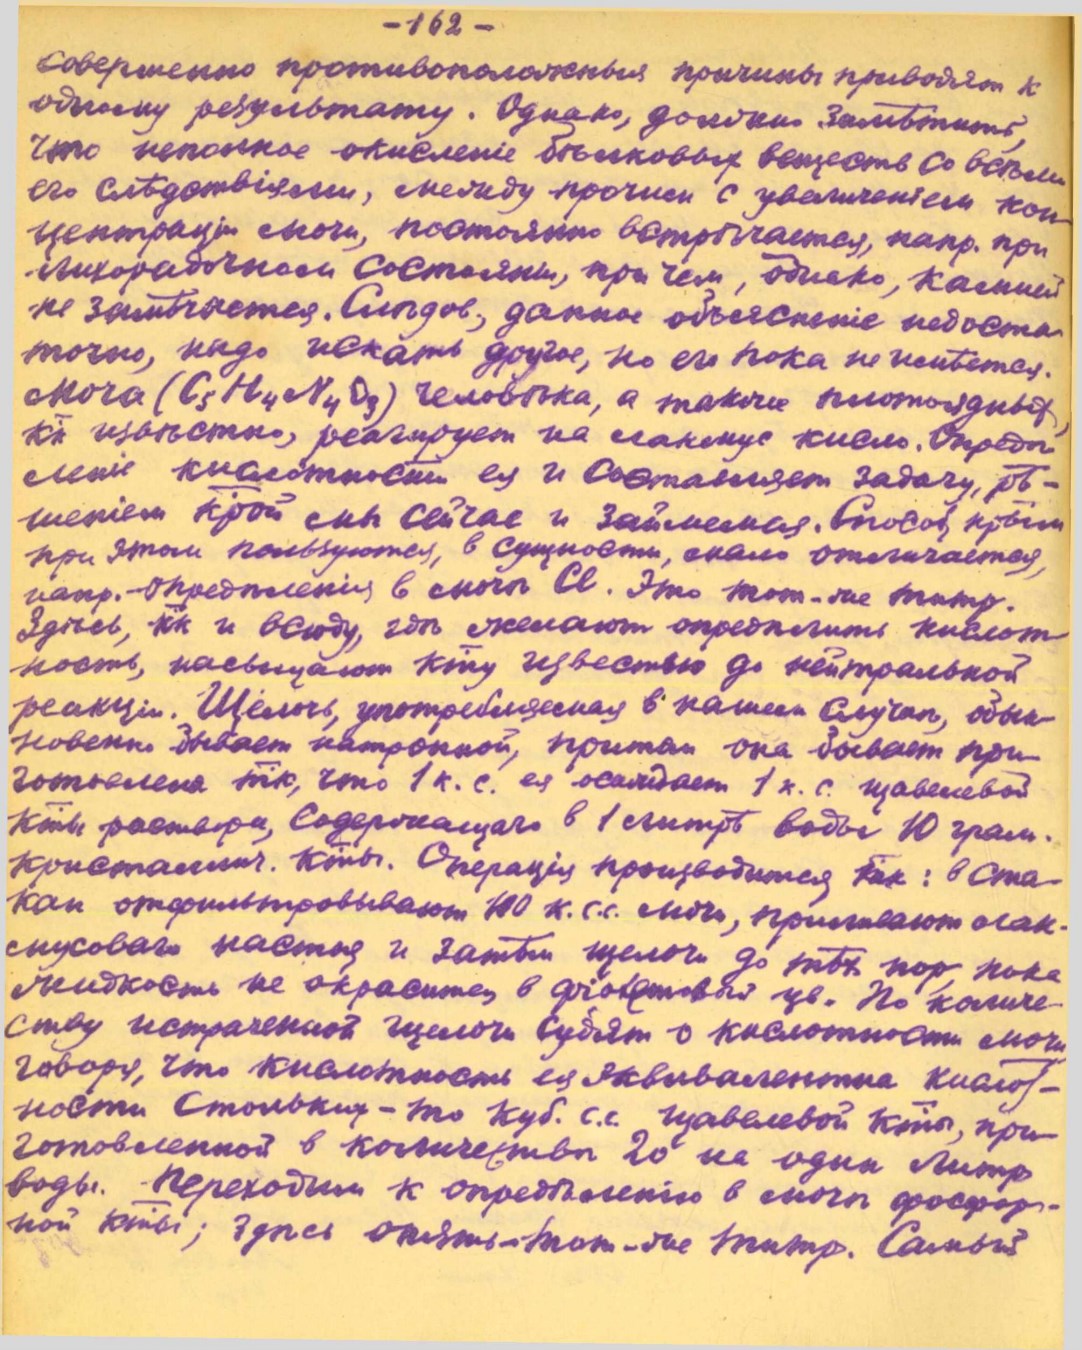 -162-
совершенно противоположныя причины приводят к
одному результату. Однако, должно замѣтить,
что неполное окисленіе бѣлковых веществ со всѣми
его слѣдствіями, между прочим с увеличеніем кон-
центраціи мочи, постоянно встрѣчается, напр. при
лихорадочном состояніи, при чем, однако, камней
не замѣчается. Слѣдов., данное объясненіе недоста-
точно, надо искать другое, но его пока не имѣется.
Моча (C5H4N4O3) человѣка, а также плотоядных,
кк извѣстно, реагирует на лакмус кисло. Опредѣ-
леніе кислотности ея и составляет задачу, рѣ-
шеніем крой мы сейчас и займемся. Способ, крым
при этом пользуются, в сущности, мало отличается,
напр. опредѣленія в мочѣ Cl. Это тот-же титр.
Здѣсь, кк и всюду, гдѣ желают опредѣлить кислот-
ность, насыщают кту известью до нейтральной
реакціи. Щелочь, употребляемая в нашем случаѣ, обык-
новенно бывает натронной, притом она бывает при-
готовлена тк, что 1 к. с. ея осаждает 1 к. с. щавелевой
кты раствора, содержащаго в 1 литрѣ воды 10 грам.
кристаллич. кты. Операція производится так: в ста-
кан отфильтровывают 100 к. с.с. мочи, приливают лак-
мусоваго настоя и затѣм щелочи до тѣх пор, пока
жидкость не окрасится в фіолетовый цв. По количе-
ству истраченной щелочи судят о кислотности мочи
говоря, что кислотность ея эквивалентна кислот-
ности стольких-то куб. с.с. щавелевой кты, при-
готовленной в количествѣ 20 на один литр
воды. Переходим к опредѣленію в мочѣ фосфор-
ной кты; здѣсь опять-тот-же титр. Самый